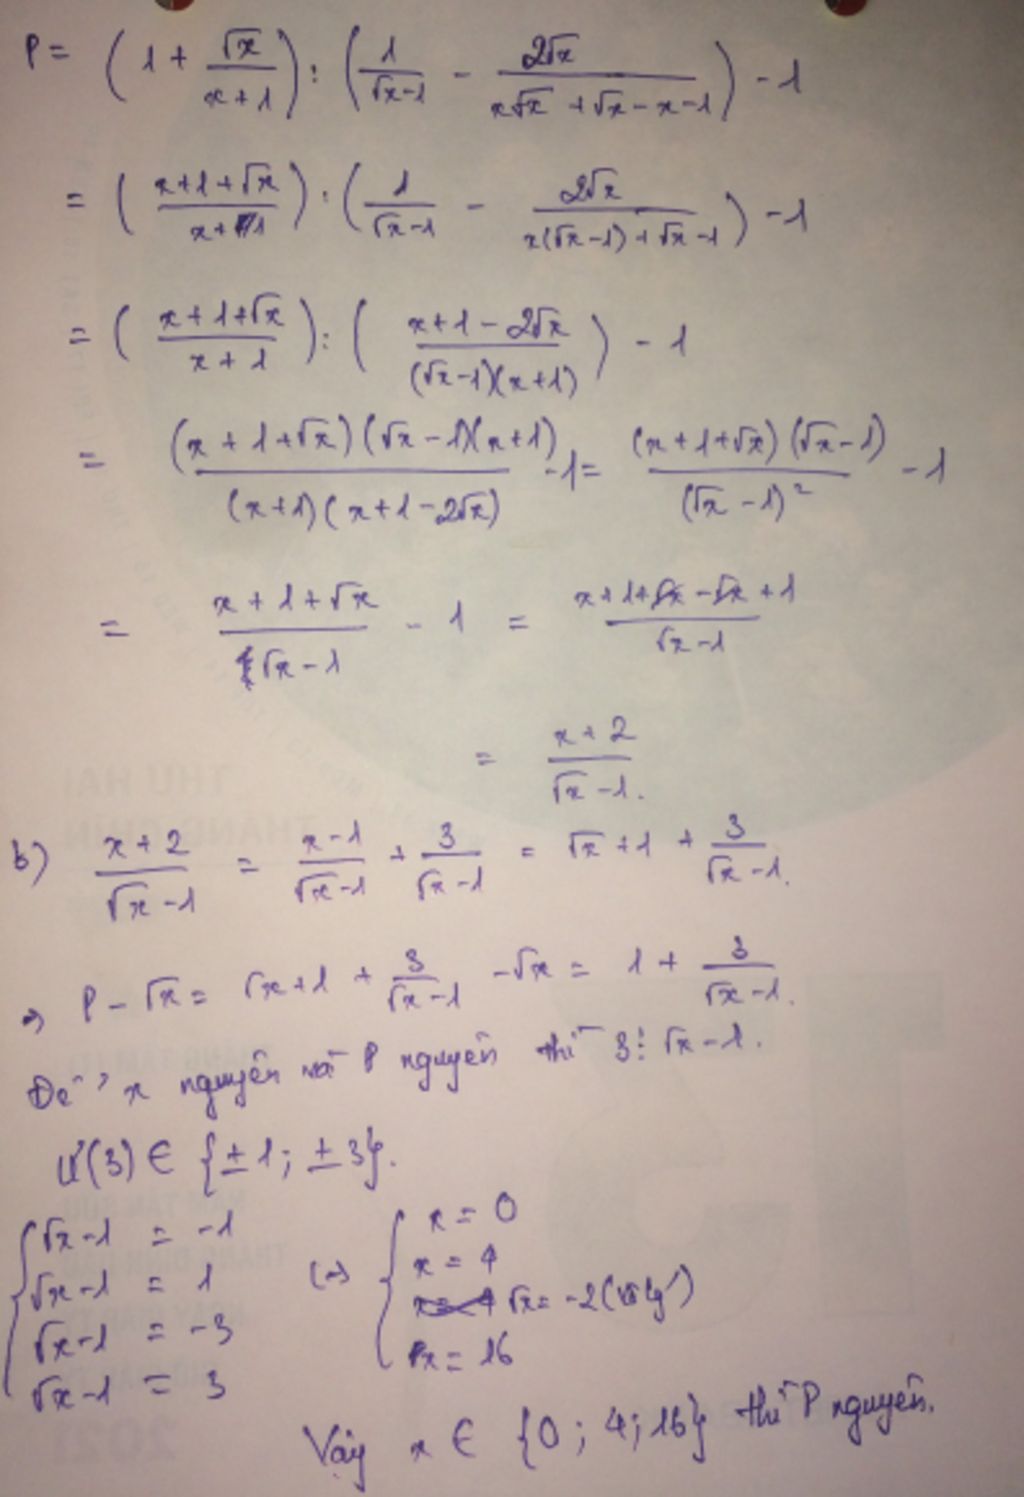 P = (1 + √x/(x+1)) : (1/(√x-1) - 2√x/(x√x + √x - x - 1)) - 1
= ((x+1+√x)/(x+1)) : (1/(√x-1) - 2√x/(x(√x-1) + √x-1)) - 1
= ((x+1+√x)/(x+1)) : ((x+1-2√x)/((√x-1)(x+1))) - 1
= (x+1+√x)(√x-1)(x+1)/((x+1)(x+1-2√x)) - 1 = (x+1+√x)(√x-1)/(√x-1)² - 1
= (x+1+√x)/(√x-1) - 1 = (x+1+√x-√x+1)/(√x-1)
= (x+2)/(√x-1).
b) (x+2)/(√x-1) = (x-1)/(√x-1) + 3/(√x-1) = √x+1 + 3/(√x-1).
⇒ P - √x = √x+1 + 3/(√x-1) - √x = 1 + 3/(√x-1).
Để x nguyên mà P nguyên thì 3 ⋮ √x-1.
Ư(3) ∈ {±1; ±3}.
{ √x-1 = -1 (⇒) { x = 0
√x-1 = 1 x = 4
√x-1 = -3 √x = -2 (vô lý)
√x-1 = 3 x = 16
Vậy x ∈ {0; 4; 16} thì P nguyên.
THU HAI